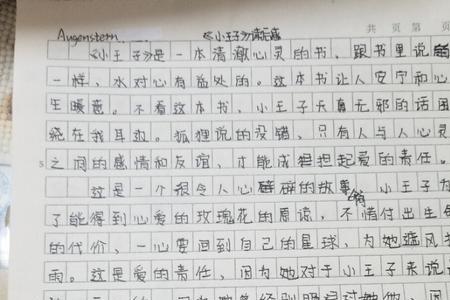 Augenstern
《小王子》读后感
共 页 第 页
《小王子》是一本清澈心灵的书,跟书里说
一样,水对心有益处的。这本书让人安宁和心
生暖意。不看这本书,小王子天真无邪的话困
绕在我耳边。狐狸说的没错,只有人与人心灵
5 之间的感情和友谊,才能成担担起爱的责任。
这是一个很令人心碎的故事,小王子为
了能得到心爱的玫瑰花的原谅,不惜付出生命
的代价,一心要回到自己的星球,为她遮风
雨。这是爱的责任,因为她对于小王子来说